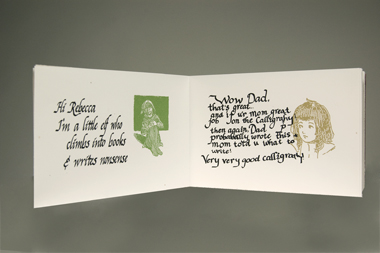 Hi Rebecca
I'm a little elf who
climbs into books
& writes nonsense
Wow Dad,
that's great
and if ur mom great
job on the Calligraphy
then again, Dad
probabally wrote this
mom told u what to
write!
Very very good calligraphy